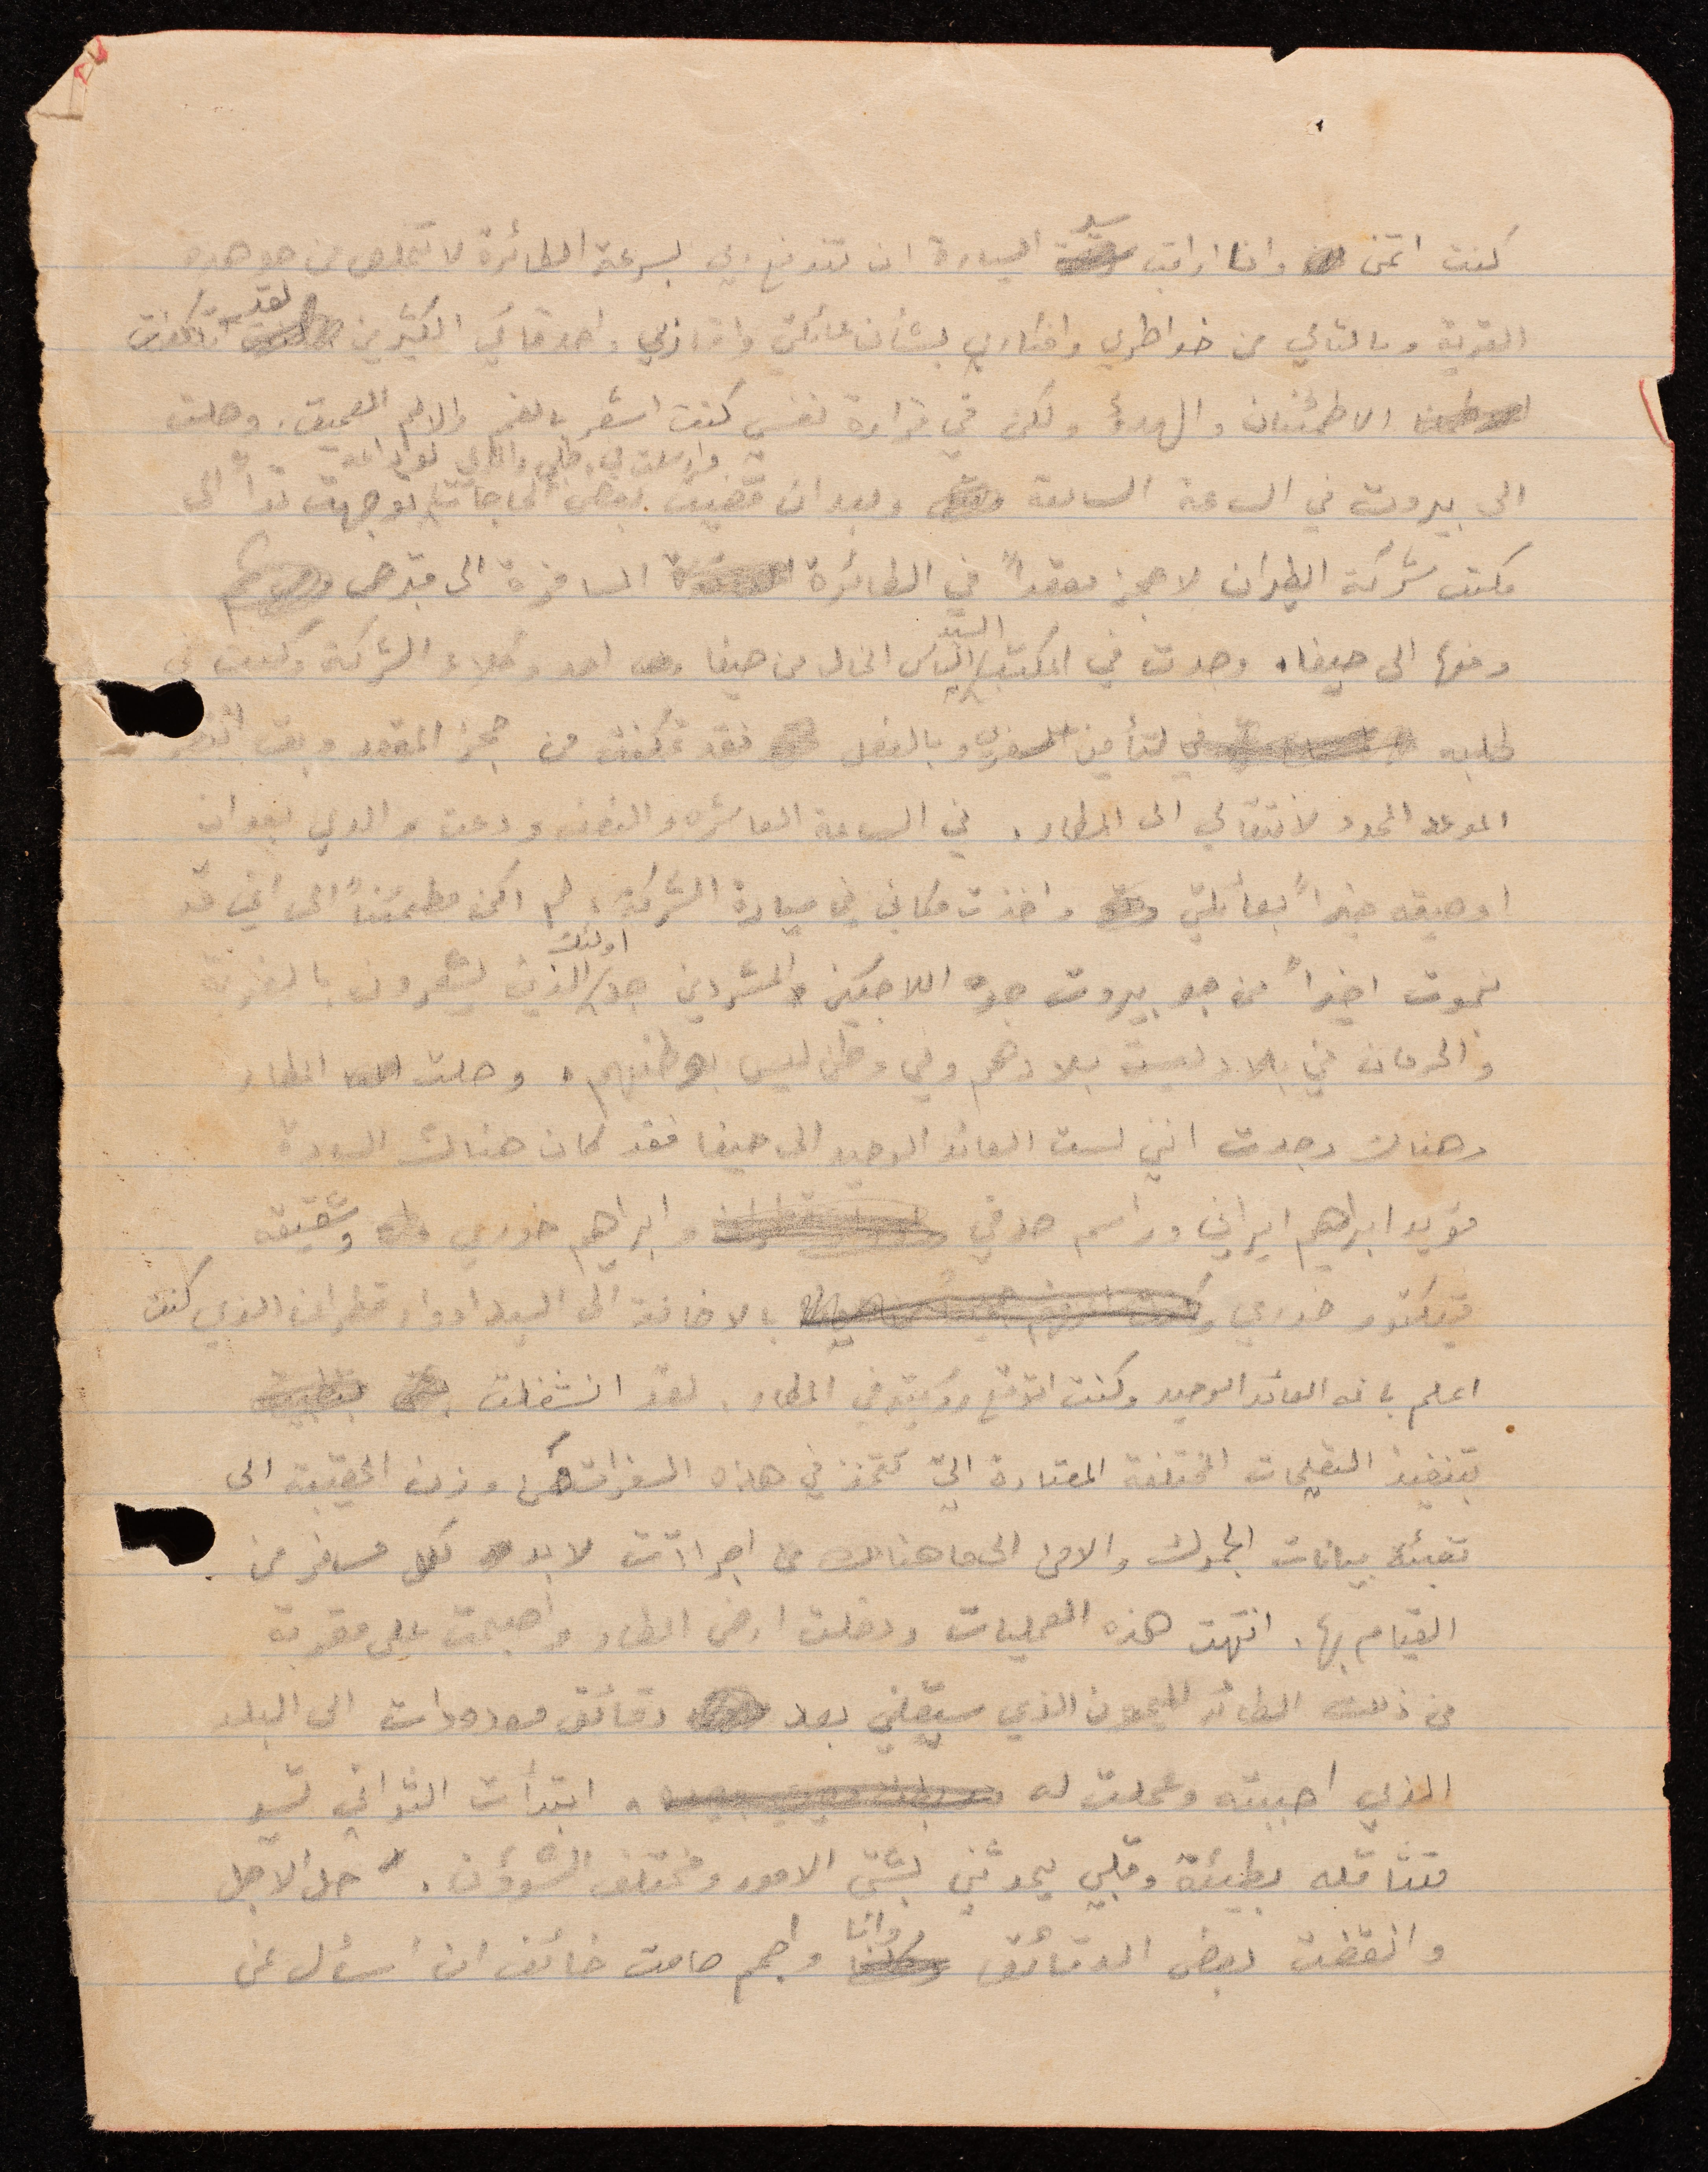 كنت اتمنى وانا اراقب سير السيارة ان تندفع بي بسرعة الطائرة لا تخلص من جو هذه
القرية وبالتالي من خواطري وافكاري بشأن عائلتي واقاربي واصدقائي الكثيرين لقد تكلفت
الاطمئنان والهدؤ ولكن في قرارة نفسي كنت اشعر بالغم والالم العميق. وصلت
الى بيروت في الساعة السابعة وبعد ان قضيت بعض الحاجات توجهت توأ الى
مكتب شركة الطيران لاحجز مقعداً في الطائرة المسافرة الى قبرص
ومنها الى حيفا. وجدت في المكتب السيد الياس الخال من حيفا احد وكلاء الشركة وكنت في
طلبه لتأمين سفري وبالفعل فقد تمكنت من حجز المقعد وبقيت انتظر
الموعد المحدد لانتقالي الى المطار. في الساعة العاشره والنصف ودعت والدي بعد ان
اوصيته خيراً بعائلتي واخذت مكاني في سيارة الشركة. لم اكن مطمئناً الى اني قد
نجوت اخيراً من جو بيروت جو اللاجئين والمشردين جو اولئك الذين يشعرون بالغربة
والحرمان في بلاد ليست بلادهم وفي وطن ليس بوطنهم. وصلت المطار
وهناك وجدت انني لست العائد الوحيد الى حيفا فقد كان هناك السادة
مؤيد ابراهيم ايراني وراسم صدقي وابراهيم خوري وشقيقه
فيكتور خوري بالاضافة الى السيد ادوار قطران الذي كنت
اعلم بانه العائد الوحيد وكنت اتوقع رؤيته في المطار. لقد انشغلت
بتنفيذ التعليمات المختلفة المعتادة التي تتخذ في هذه السفرات من وزن الحقيبة الى
تعبئة بيانات الجمرك والامن الى ما هنالك من اجراآت لا بد لكل مسافر من
القيام بها. انتهت هذه العمليات ودخلت ارض المطار واصبحت على مقربة
من ذلك الطائر الميمون الذي سيقلني بعد دقائق معدودات الى البلد
الذي احببته وعملت له. ابتدأت الثواني تسير
متثاقله بطيئة وقلبي يحدثني بشتى الامور ومختلف الشؤون. حل الاجل
وانقضت بعض الدقائق وانا واجم صامت خائف ان اسأل عن